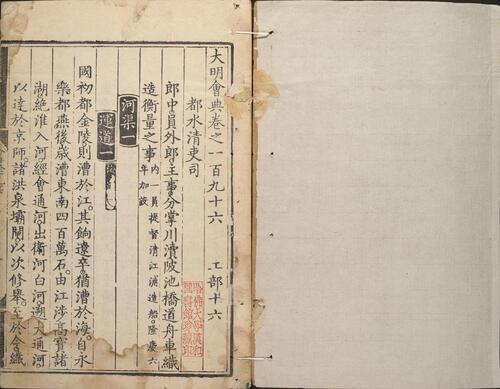 大明會典卷之一百九十六 工部十六
都水清吏司
郎中員外郎主事分掌川瀆陂池橋道舟車織
造衡量之事 內一員提督清江浦造船隆慶六
年加設
河渠一
運道一
國初都金陵則漕於江其餉遼卒猶漕於海自永
樂都燕後歲漕東南四百萬石由江涉高寶諸
湖絶淮入河經會通河出衛河白河溯大通河
以達於京師諸洪泉壩閘以次修舉至於今纖
哈佛大學漢和
圖書館珍藏印